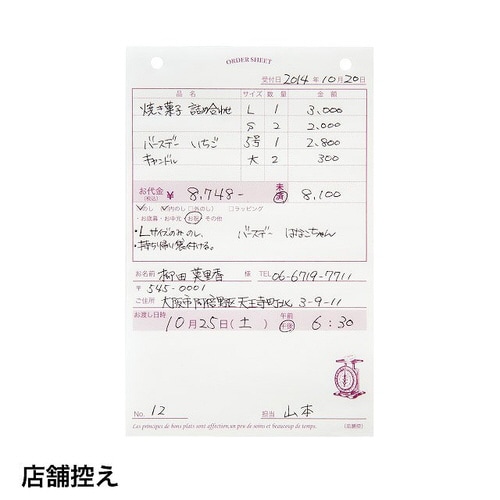 ORDER SHEET
受付日 2014 年 10 月 20 日
品 名 サイズ 数 量 金 額
焼き菓子 詰め合わせ L 1 3,000
S 2 2,000
バースデー いちご 5号 1 2,800
キャンドル 大 2 300
お代金(税込) ¥ 8,748- 未 済 8,100
のし (内のし □外のし) □ラッピング
・お歳暮・お中元・お祝・その他
・Lサイズのみ のし、 バースデー はなこちゃん
・持ち帰り袋付ける。
お名前 柳田 茉里香 様 TEL 06-6719-7711
〒 545-0001
ご住所 大阪市阿倍野区天王寺町北 3-9-11
お渡し日時 10月25日(土) 午前 午後 6:30
No. 12 担当 山本
Les principes de bons plats sont affection, un peu de soins et beaucoup de temps. (店舗控)
店舗控え